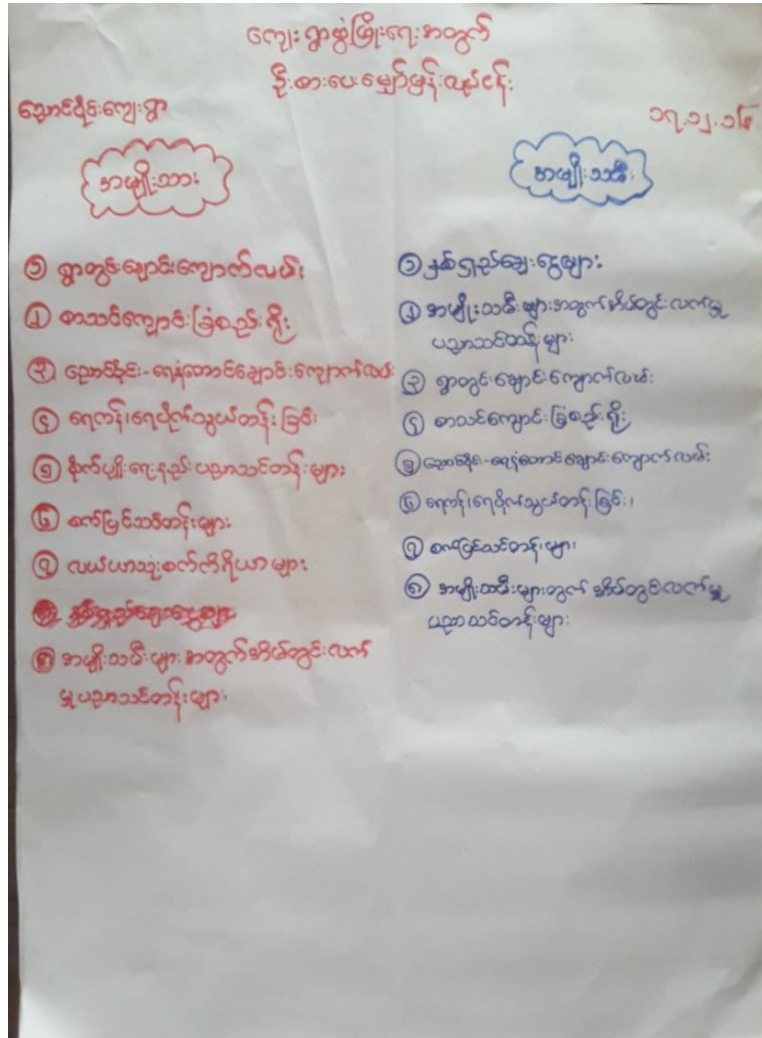 ကျေးရွာဖွံ့ဖြိုးရေးအတွက်
ဦးစားပေးမျှော်မှန်းလုပ်ငန်း
ညောင်ပိုင်းကျေးရွာ
၁၇.၁၂.၁၆
အမျိုးသား
၁ ရွာတွင်းချောင်းကျောက်လမ်း
၂ စာသင်ကျောင်းခြံစည်းရိုး
၃ ညောင်ပိုင်း-ရေနံတောင်ချောင်းကျောက်လမ်း
၄ ရေကန်၊ရေပိုက်သွယ်တန်းခြင်း
၅ စိုက်ပျိုးရေးနည်းပညာသင်တန်းများ
၆ စက်ပြင်သင်တန်းများ
၇ လယ်ယာသုံးစက်ကိရိယာများ
၈ အမျိုးသမီးများအတွက်အိမ်တွင်းလက်
မှုပညာသင်တန်းများ
အမျိုးသမီး
၁ နှစ်ရှည်ချေးငွေများ
၂ အမျိုးသမီးများအတွက်အိမ်တွင်းလက်မှု
ပညာသင်တန်းများ
၃ ရွာတွင်းချောင်းကျောက်လမ်း
၄ စာသင်ကျောင်းခြံစည်းရိုး
၅ ညောင်ပိုင်း-ရေနံတောင်ချောင်းကျောက်လမ်း
၆ ရေကန်၊ရေပိုက်သွယ်တန်းခြင်း၊
၇ စက်ပြင်သင်တန်းများ
၈ အမျိုးသမီးများတွက်အိမ်တွင်းလက်မှု
ပညာသင်တန်းများ